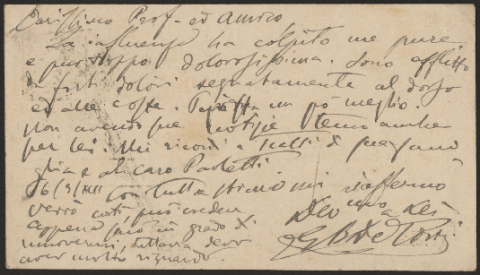 Carissimo Prof. ed Amico
La influenza ha colpito me pure
e purtroppo dolorosissima. Sono afflitto
da forti dolori segnatamente al dorso
ed alle coste. Pare sta un po meglio.
Non avendo sue notizie temo anche
per lei. Mi ricordi a tutti di sua fami
glia e al caro Paoletti
con tutta stima mi riaffermo
verrò costì, può credere
appena sarò in grado di
muovermi, tuttavia devo
aver molto riguardo
Devo suo a Lei
G B De Toni